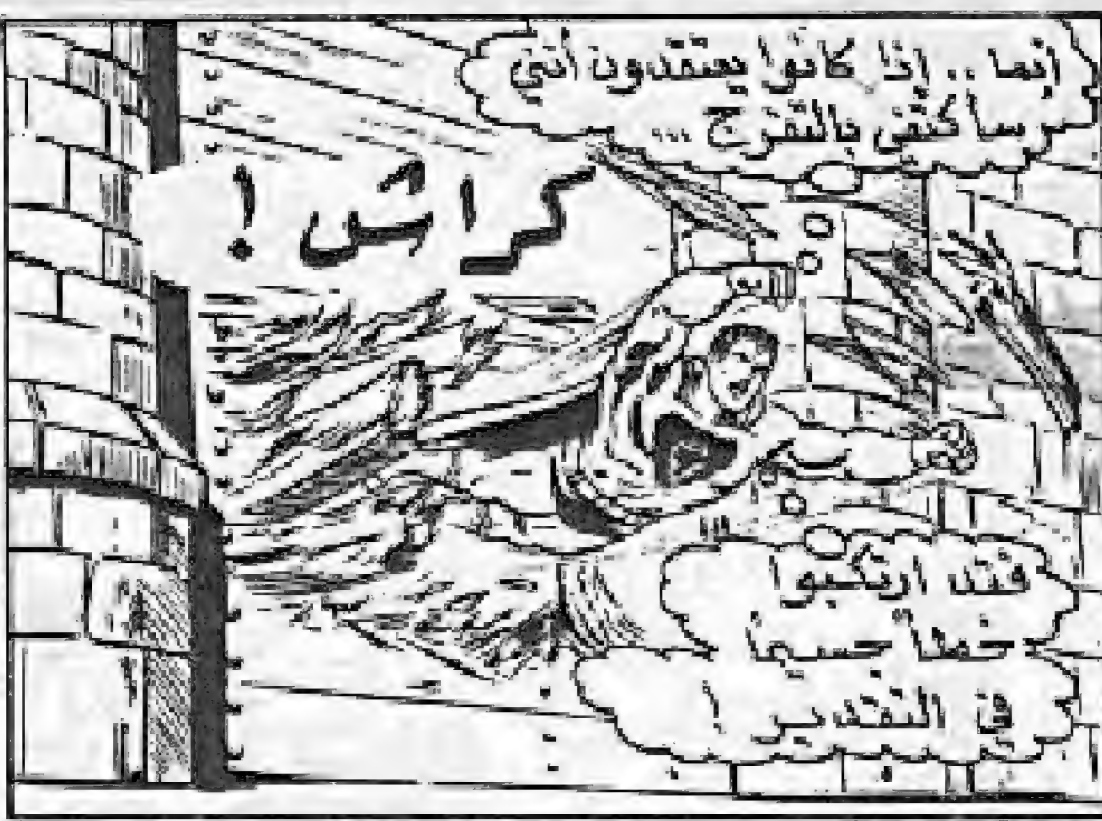 إنما .. إذا كانوا يعتقدون أنني
سأكتفي بالتفرج ...
كراش !
فقد ارتكبوا
خطأ جسيما
في التقدير !